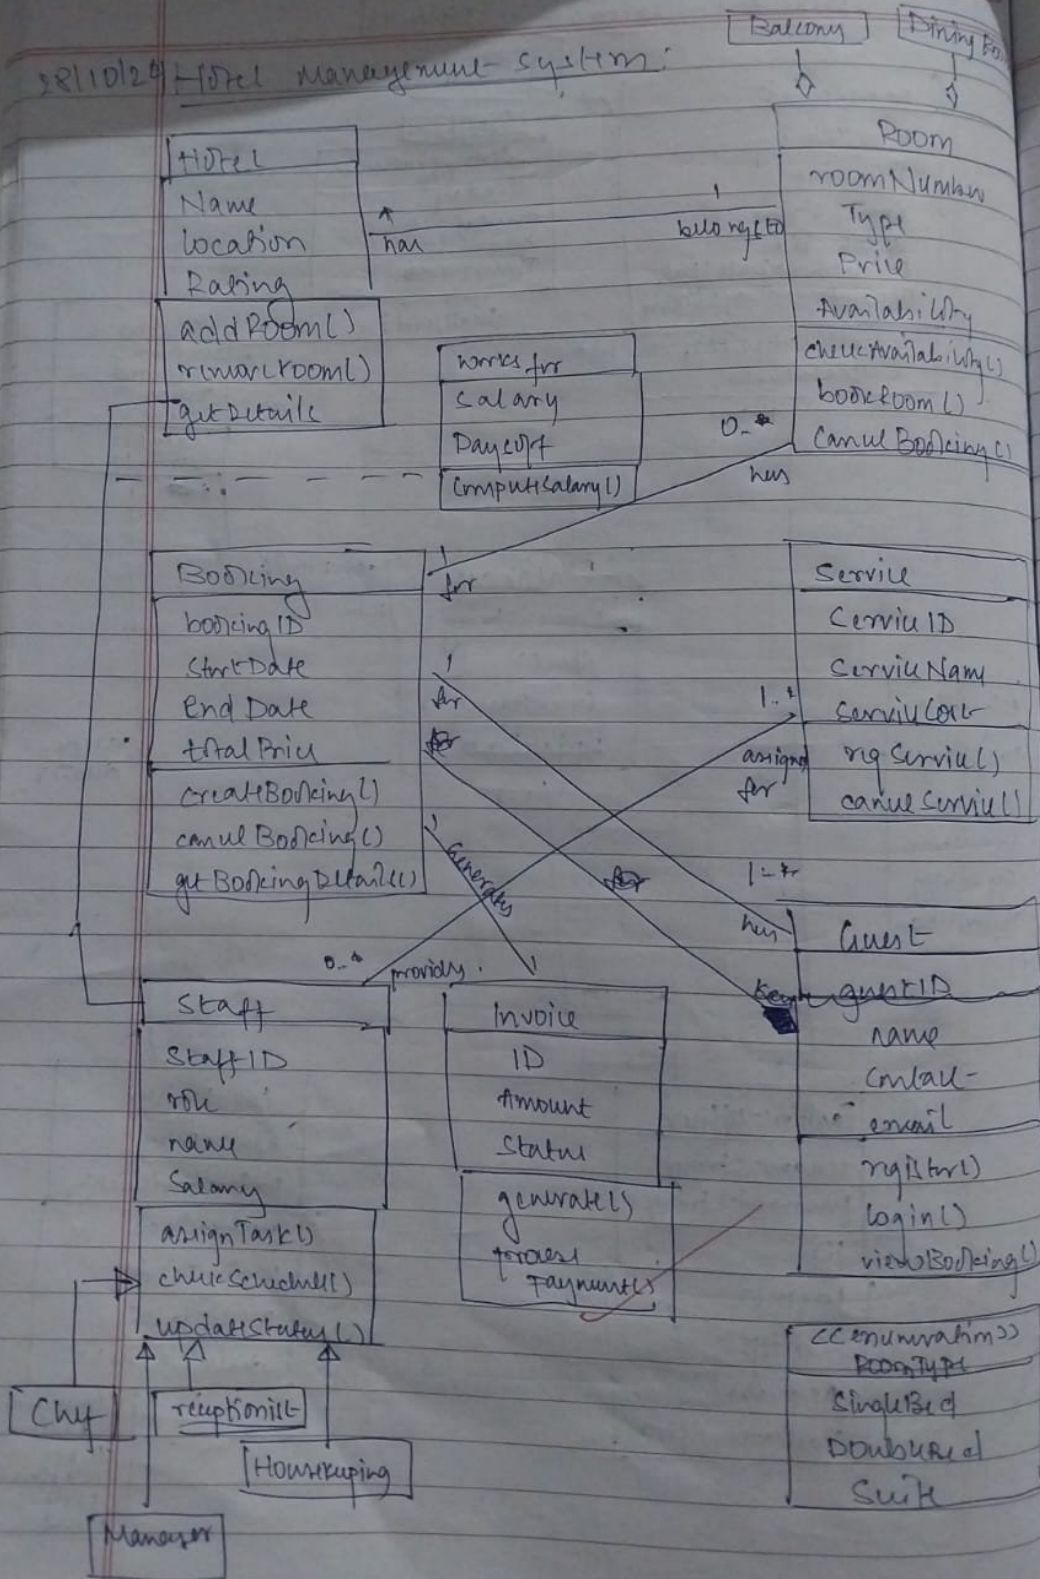 Balcony
Dining Roo
28/10/24 Hotel Management System:
Hotel
Name
Location
Rating
addRoom()
removeroom()
getDetails
*
has
1
belongs to
Room
roomNumber
Type
Price
Availability
checkAvailability()
bookRoom()
CancelBooking()
Works for
Salary
ComputeSalary()
0..*
has
Booking
bookingID
StartDate
End Date
totalPrice
createBooking()
cancelBooking()
getBookingDetails()
1
for
1
for
1
Generates
1
Service
ServiceID
ServiceName
ServiceCost
reqService()
cancelService()
1..*
assigned
for
0..*
provides.
1..*
has
Guest
guestID
name
Contact
email
register()
login()
viewBooking()
Staff
StaffID
role
name
Salary
assignTask()
checkSchedule()
updateStatus()
Invoice
ID
Amount
Status
generate()
process
Payment()
Chef
receptionist
Housekeeping
Manager
<<enumeration>>
RoomType
SingleBed
DoubleBed
Suite